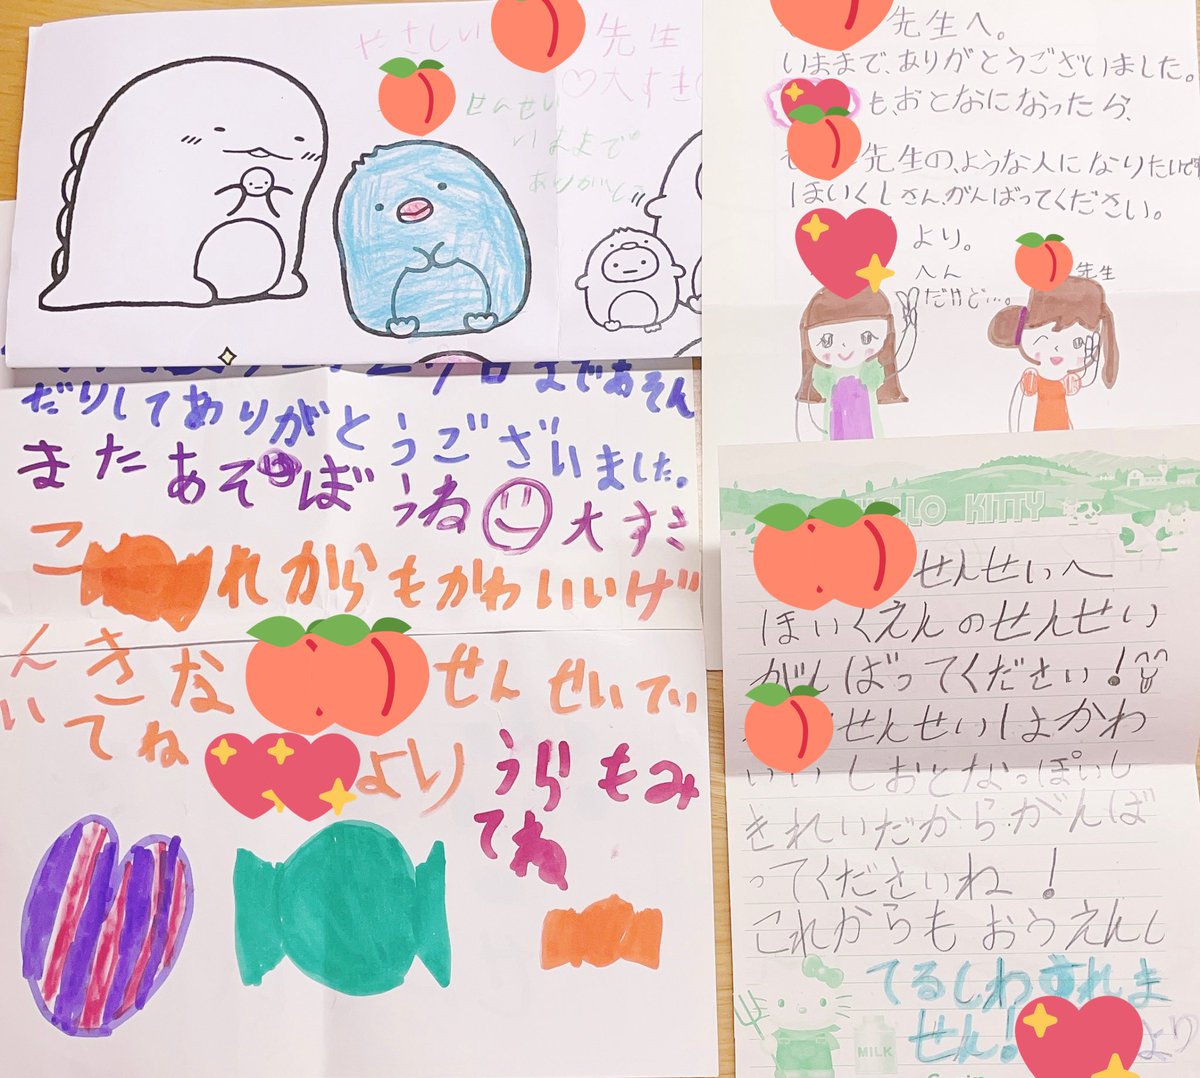 やさしい
先生
♡大すき♡
せんせい
いままで
ありがとう
先生へ。
いままで、ありがとうございました。
も、おとなになったら、
先生の、ような人になりたいです
ほいくしさん、がんばってください。
より。
へん
だけど…。
先生
まであそん
だりしてありがとうございました。
またあそぼうね 大すき
これからもかわいいげ
んきな せんせいでい
いてね より
うらもみ
てね
HELLO KITTY
せんせいへ
ほいくえんのせんせい
がんばってください!
せんせいはかわ
いいしおとなっぽいし
きれいだからがんば
ってくださいね!
これからもおうえんし
てるしわすれま
せん!
より
MILK